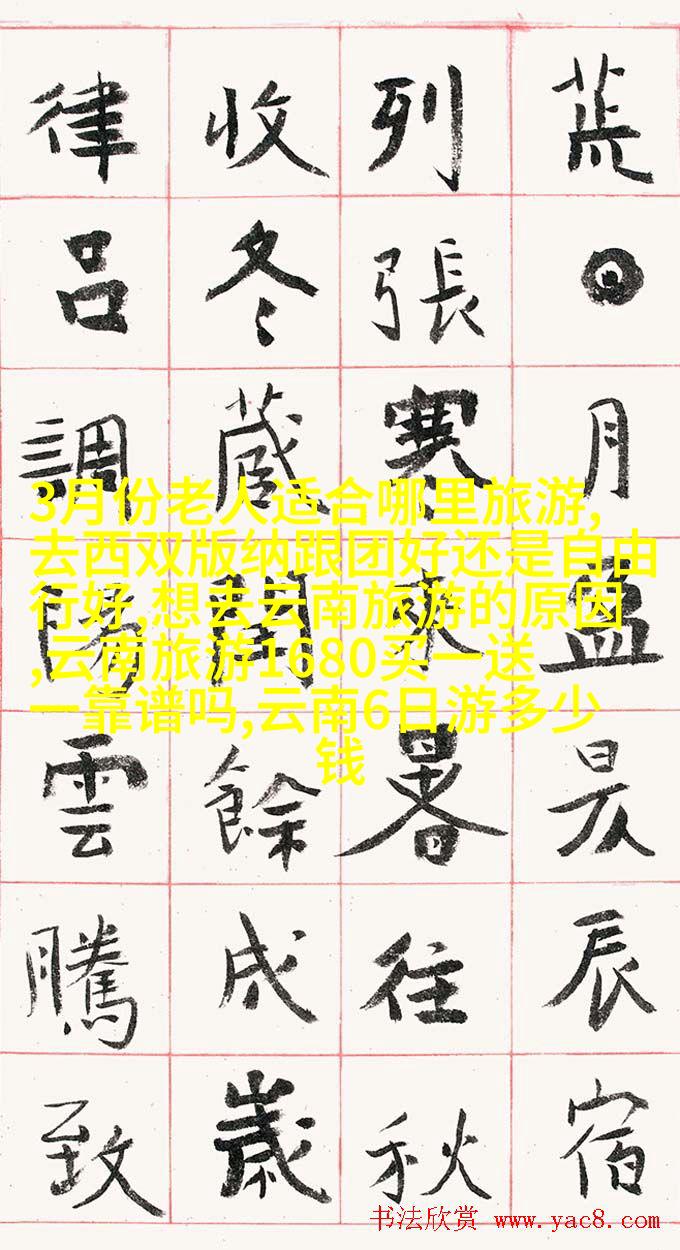 荒日月盈昃辰宿
列張寒來暑往秋
收冬藏閏餘成歲
律呂調陽雲騰致
3月份老人适合哪里旅游,
去西双版纳跟团好还是自由
行好,想去云南旅游的原因
,云南旅游1680买一送
一靠谱吗,云南6日游多少
钱
书法欣赏 www.yac8.com